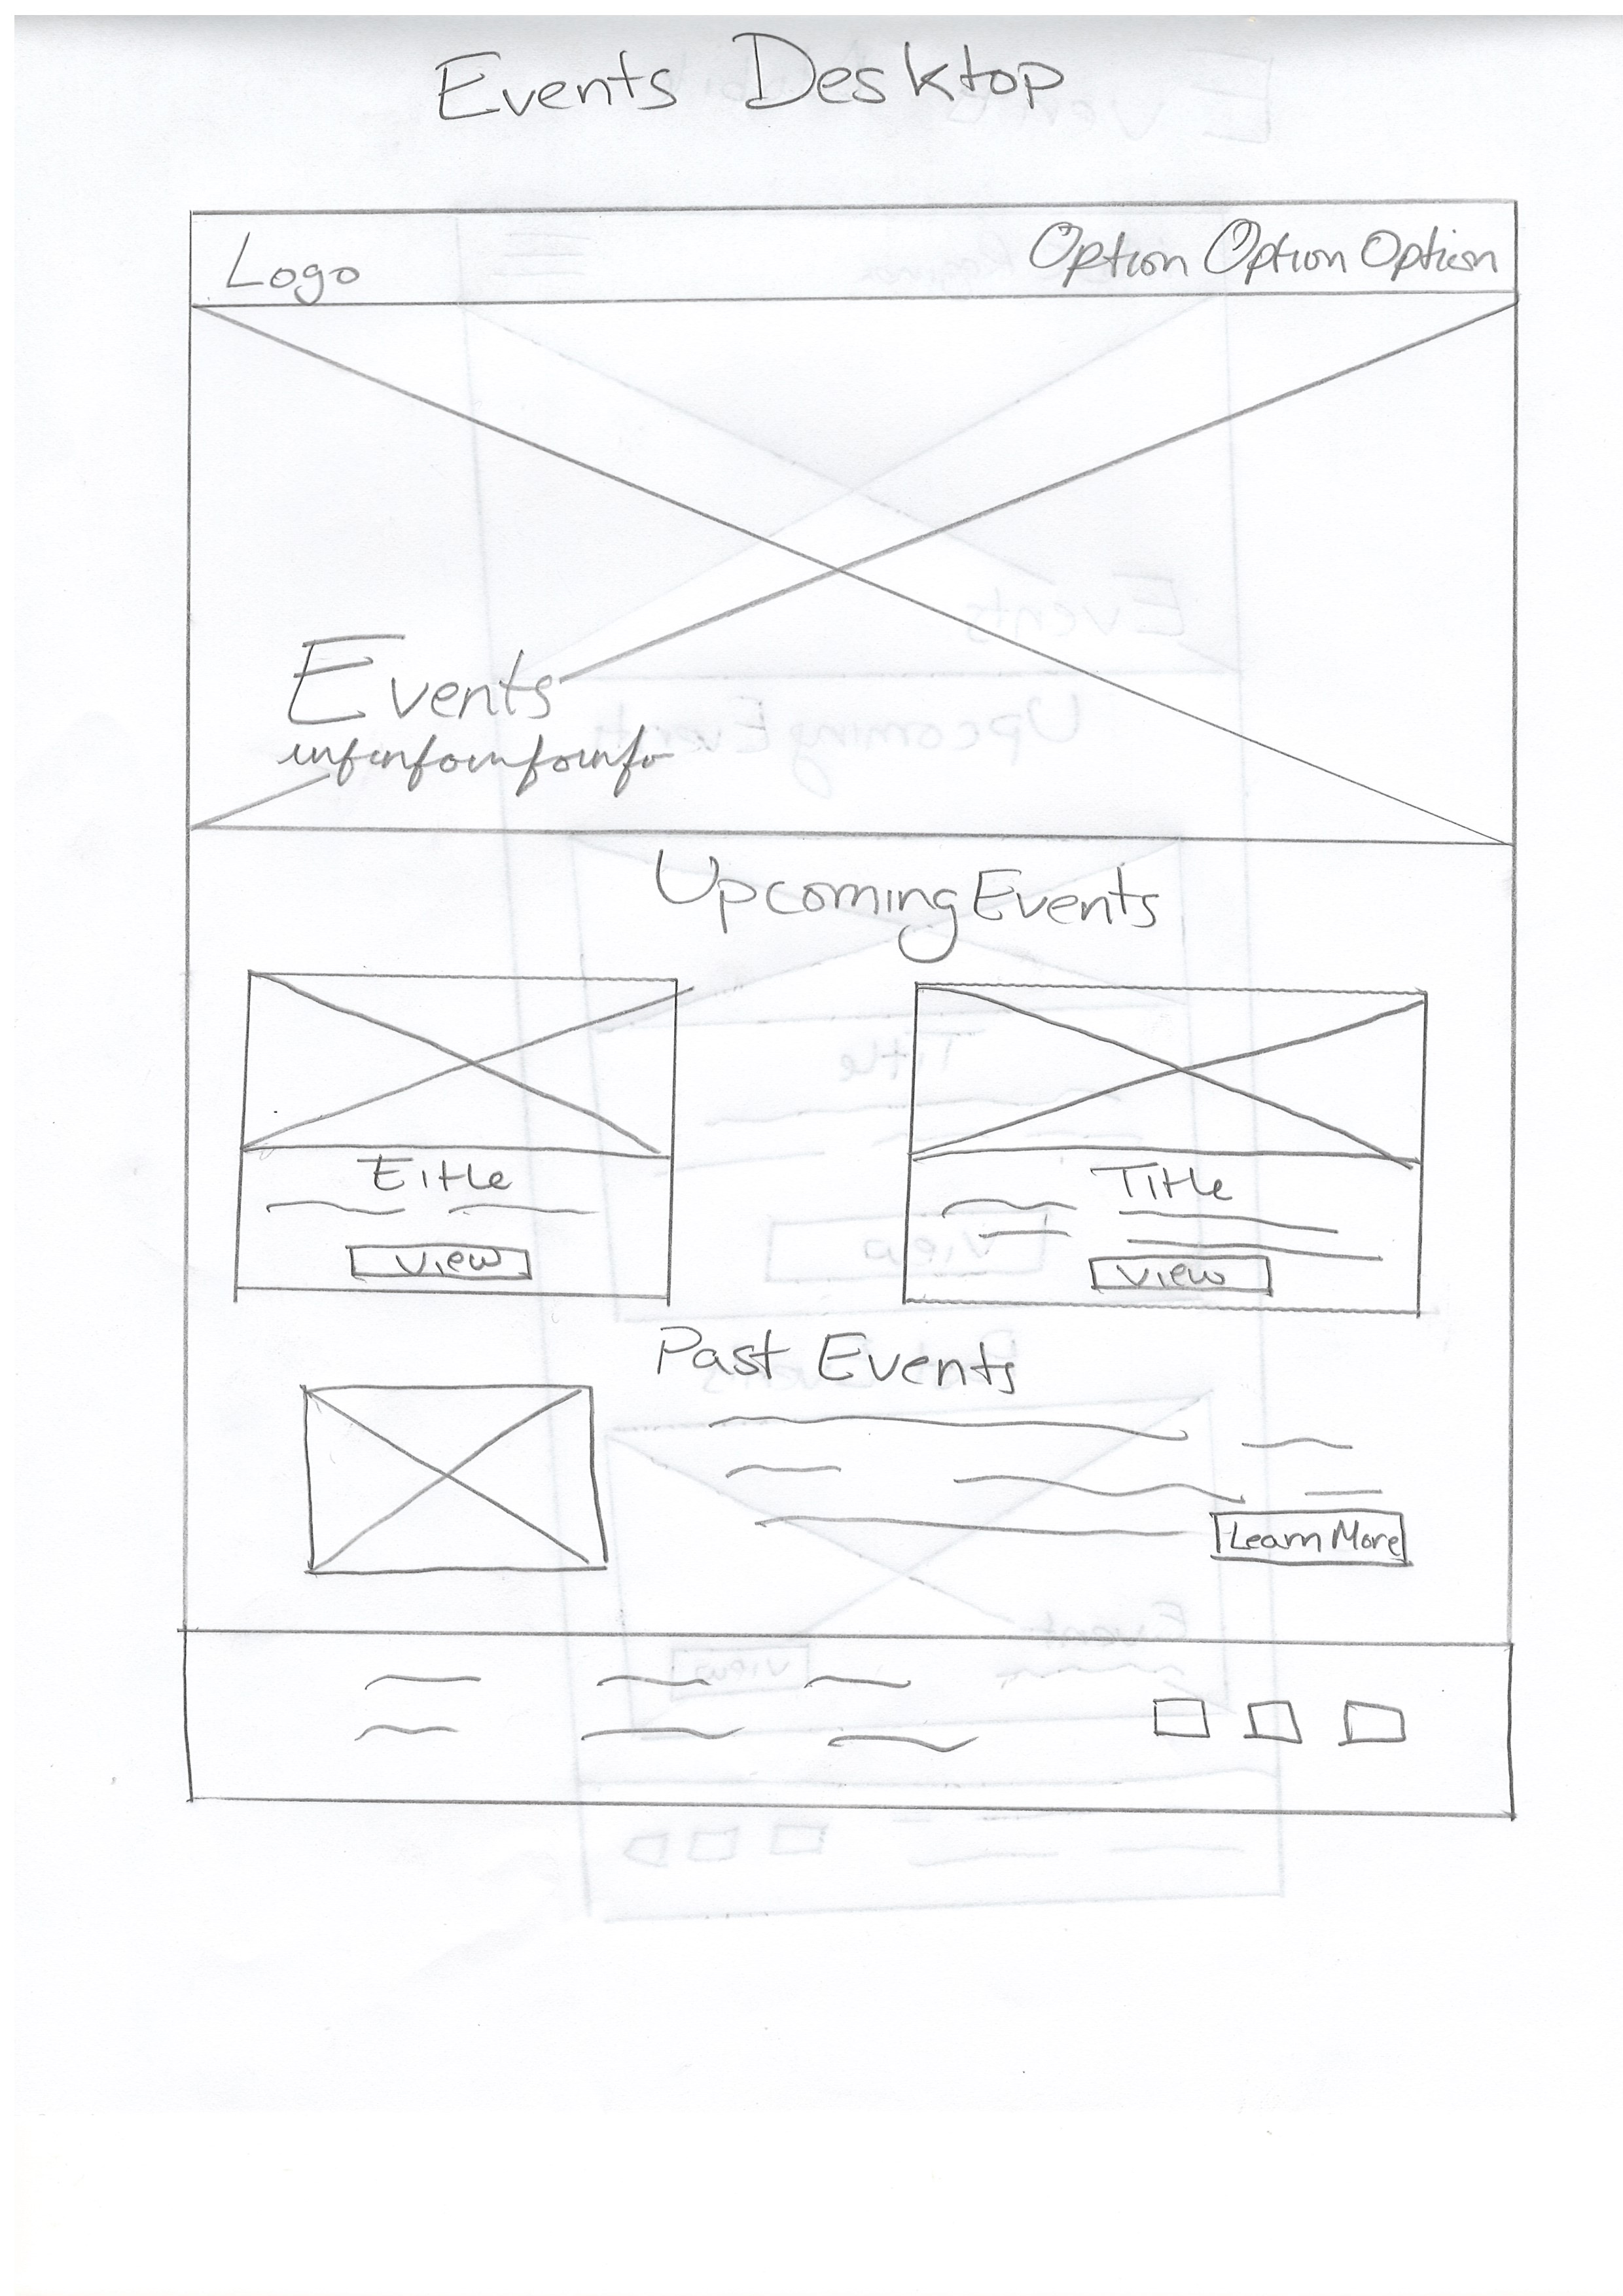 Events Desktop
Logo Option Option Option
Events
infinfoinfoinfo
Upcoming Events
Eitle Title
View View
Past Events
Learn More